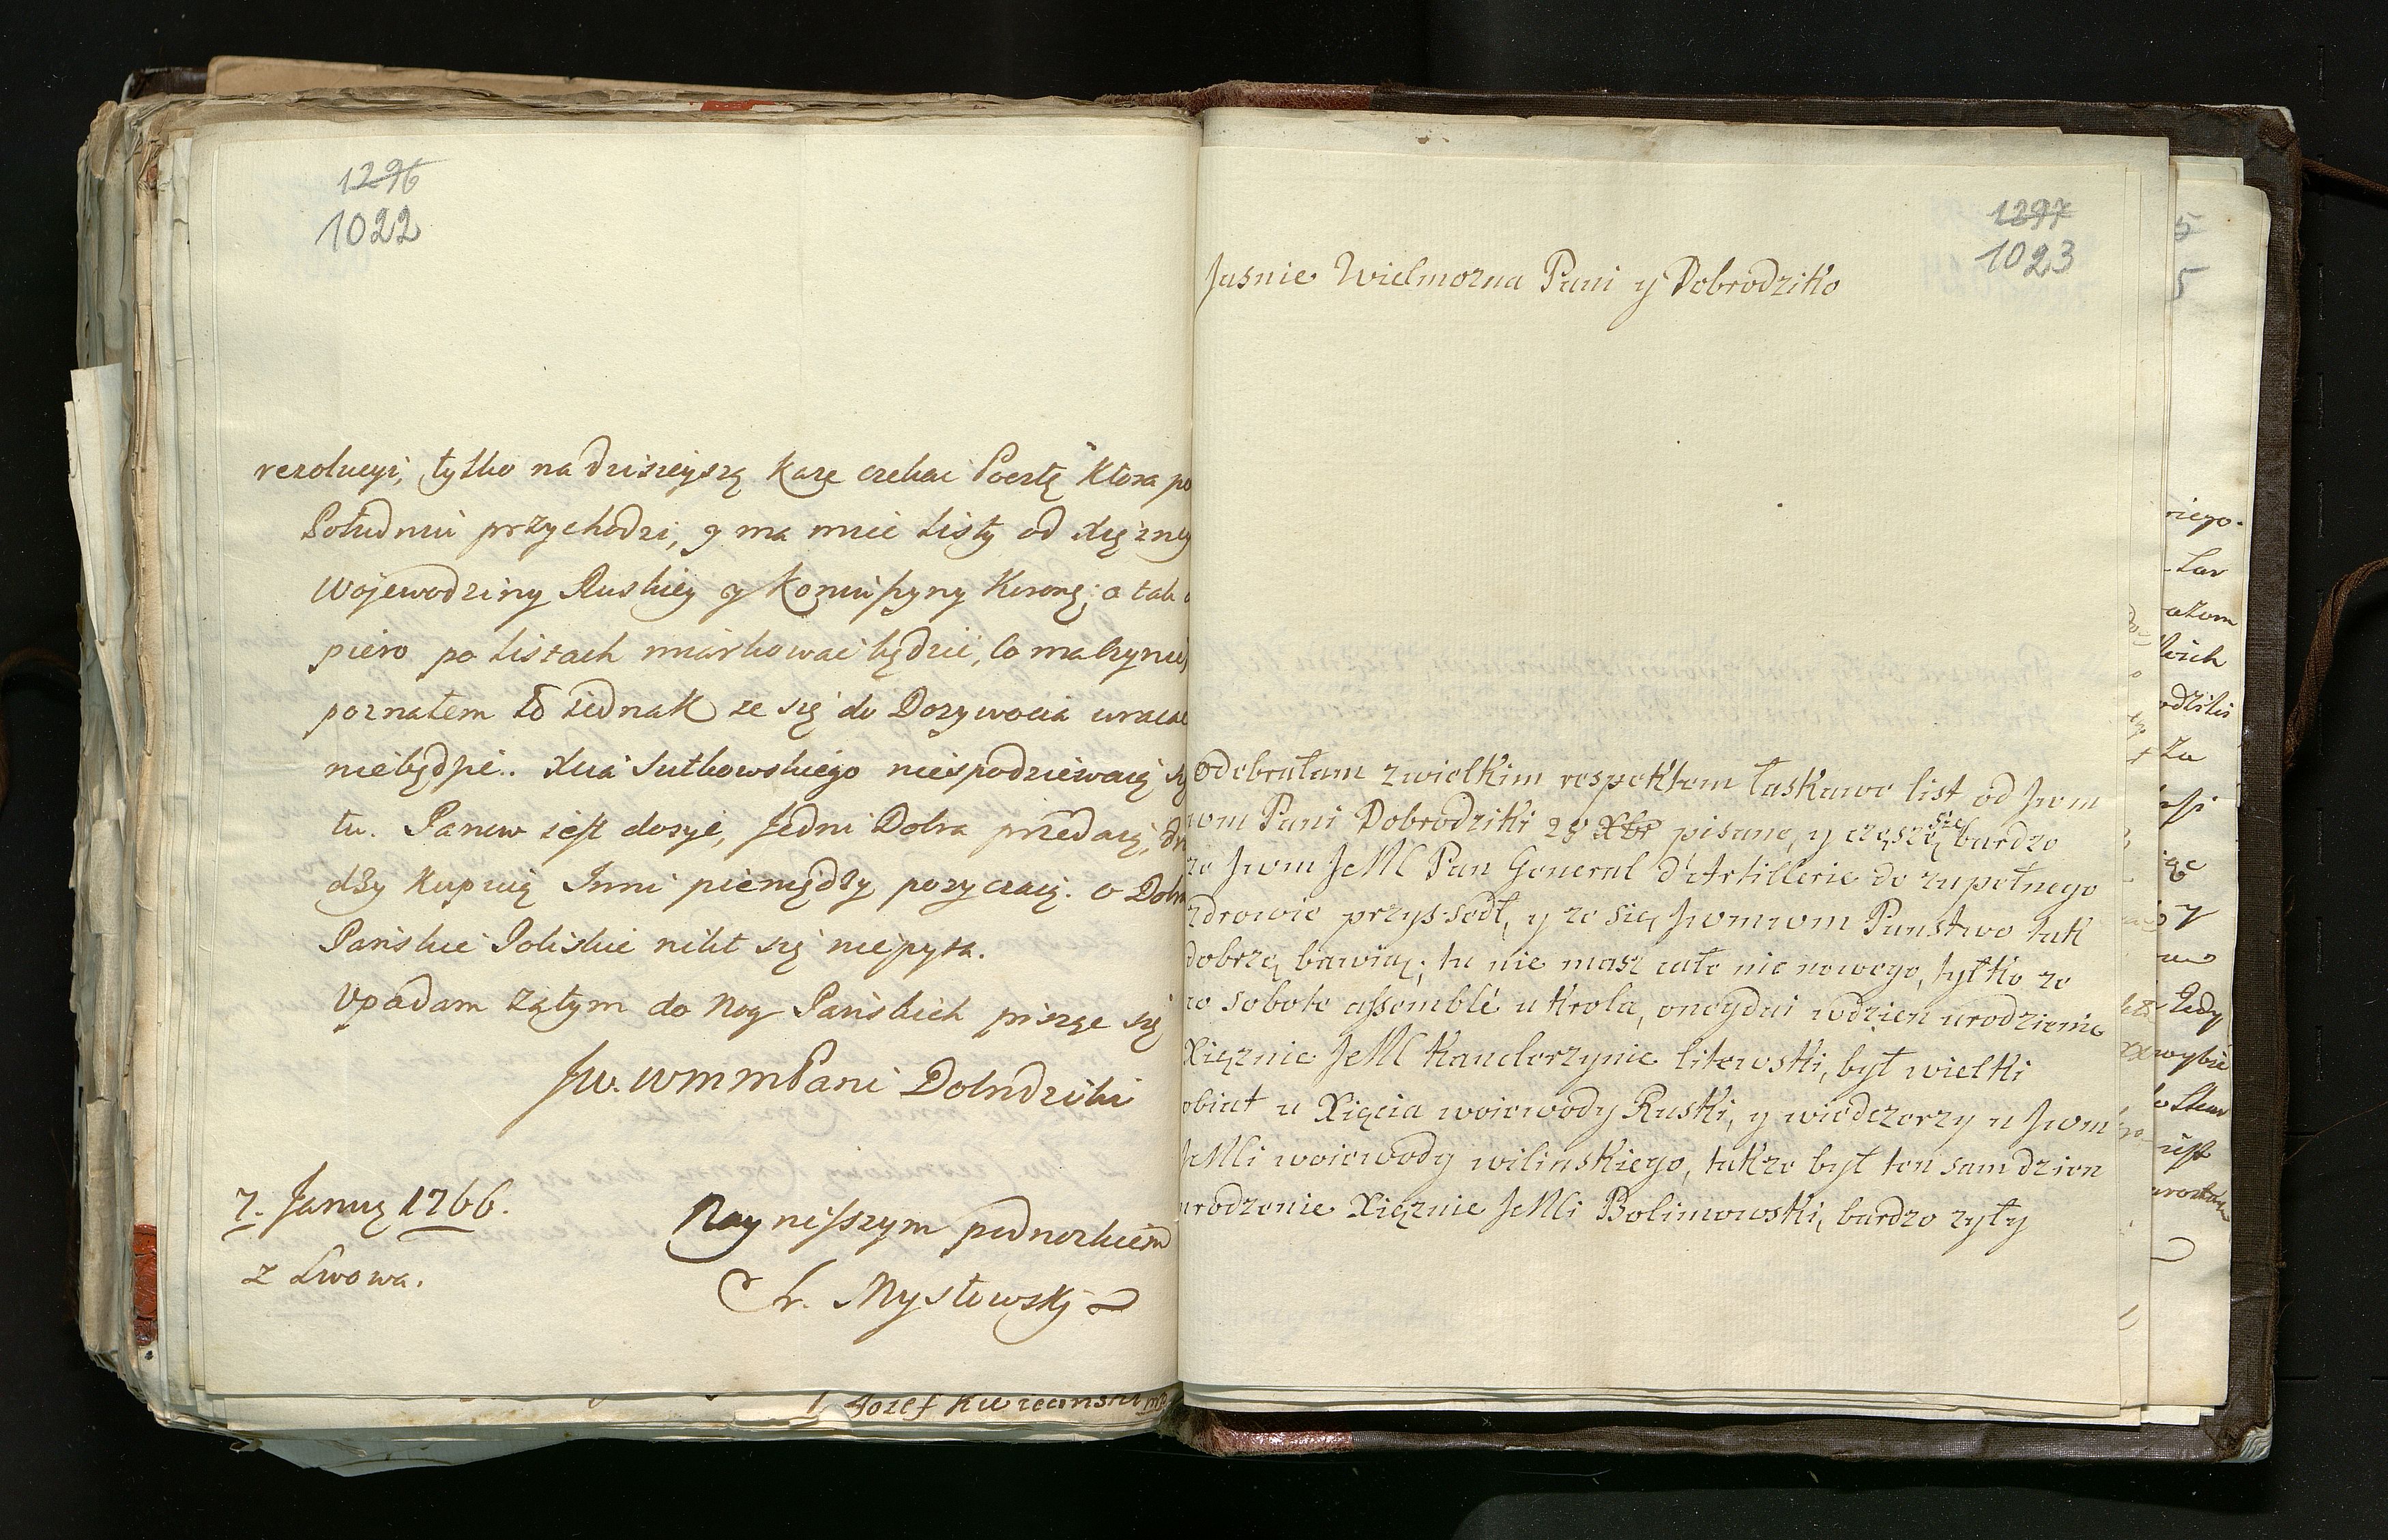 1296
1022
rezolucyi, tylko na dzisieyszą każe czekać Pocztę ktora po
Południu przychodzi, y ma mieć Listy od Xiężney
Wojewodziny Ruskiey y Koniuszyny Koron: a tak
piero po Listach miarkować będzie, co ma czynić
poznałem to iednak że się do Dożywocia wracać
niebędzie.. Xcia Sułkowskiego niespodziewaią się
tu. Panów iest dosyć, Jedni Dobra przedaią, dru
dzy kupuią Inni pieniędzy pozyczaią. o Dobra
Pańskie Poliskie nikt się niepyta.
Upadam zatym do Nog Pańskich piszę się
Jw. WMM Pani Dobrodziki
7. Januz 1766.
z Lwowa.
Nayniższym podnożkiem
Fr. Mysłowski
Jozef Kwieciński mp
1297
1023
Jasnie Wielmozna Pani y Dobrodziko
Odebrałam z wielkim respektem łaskawe list od Jwm
wm Pani Dobrodziki 28 Xbr pisane, y cięszę się bardzo
ze Jwm JeMl Pan General d'Artillerie do zupełnego
zdrowie przyssedł, y ze się Jwmwm Panstwo tak
dobrzę bawią; tu nie masz cale nic nowego, tylko ze
we sobote assemblé u Krola, oneydni w dzien urodzienie
Xięznie JeMl Kanclerzynie litewski, był wielki
obiat u Xięcia woiewody Ruski, y wiedczerzy u Jwm
JeMli woiewody wilinskiego, takze był ten sam dzien
urodzenie Xięznie JeMli Bolimowski, bardzo zyły